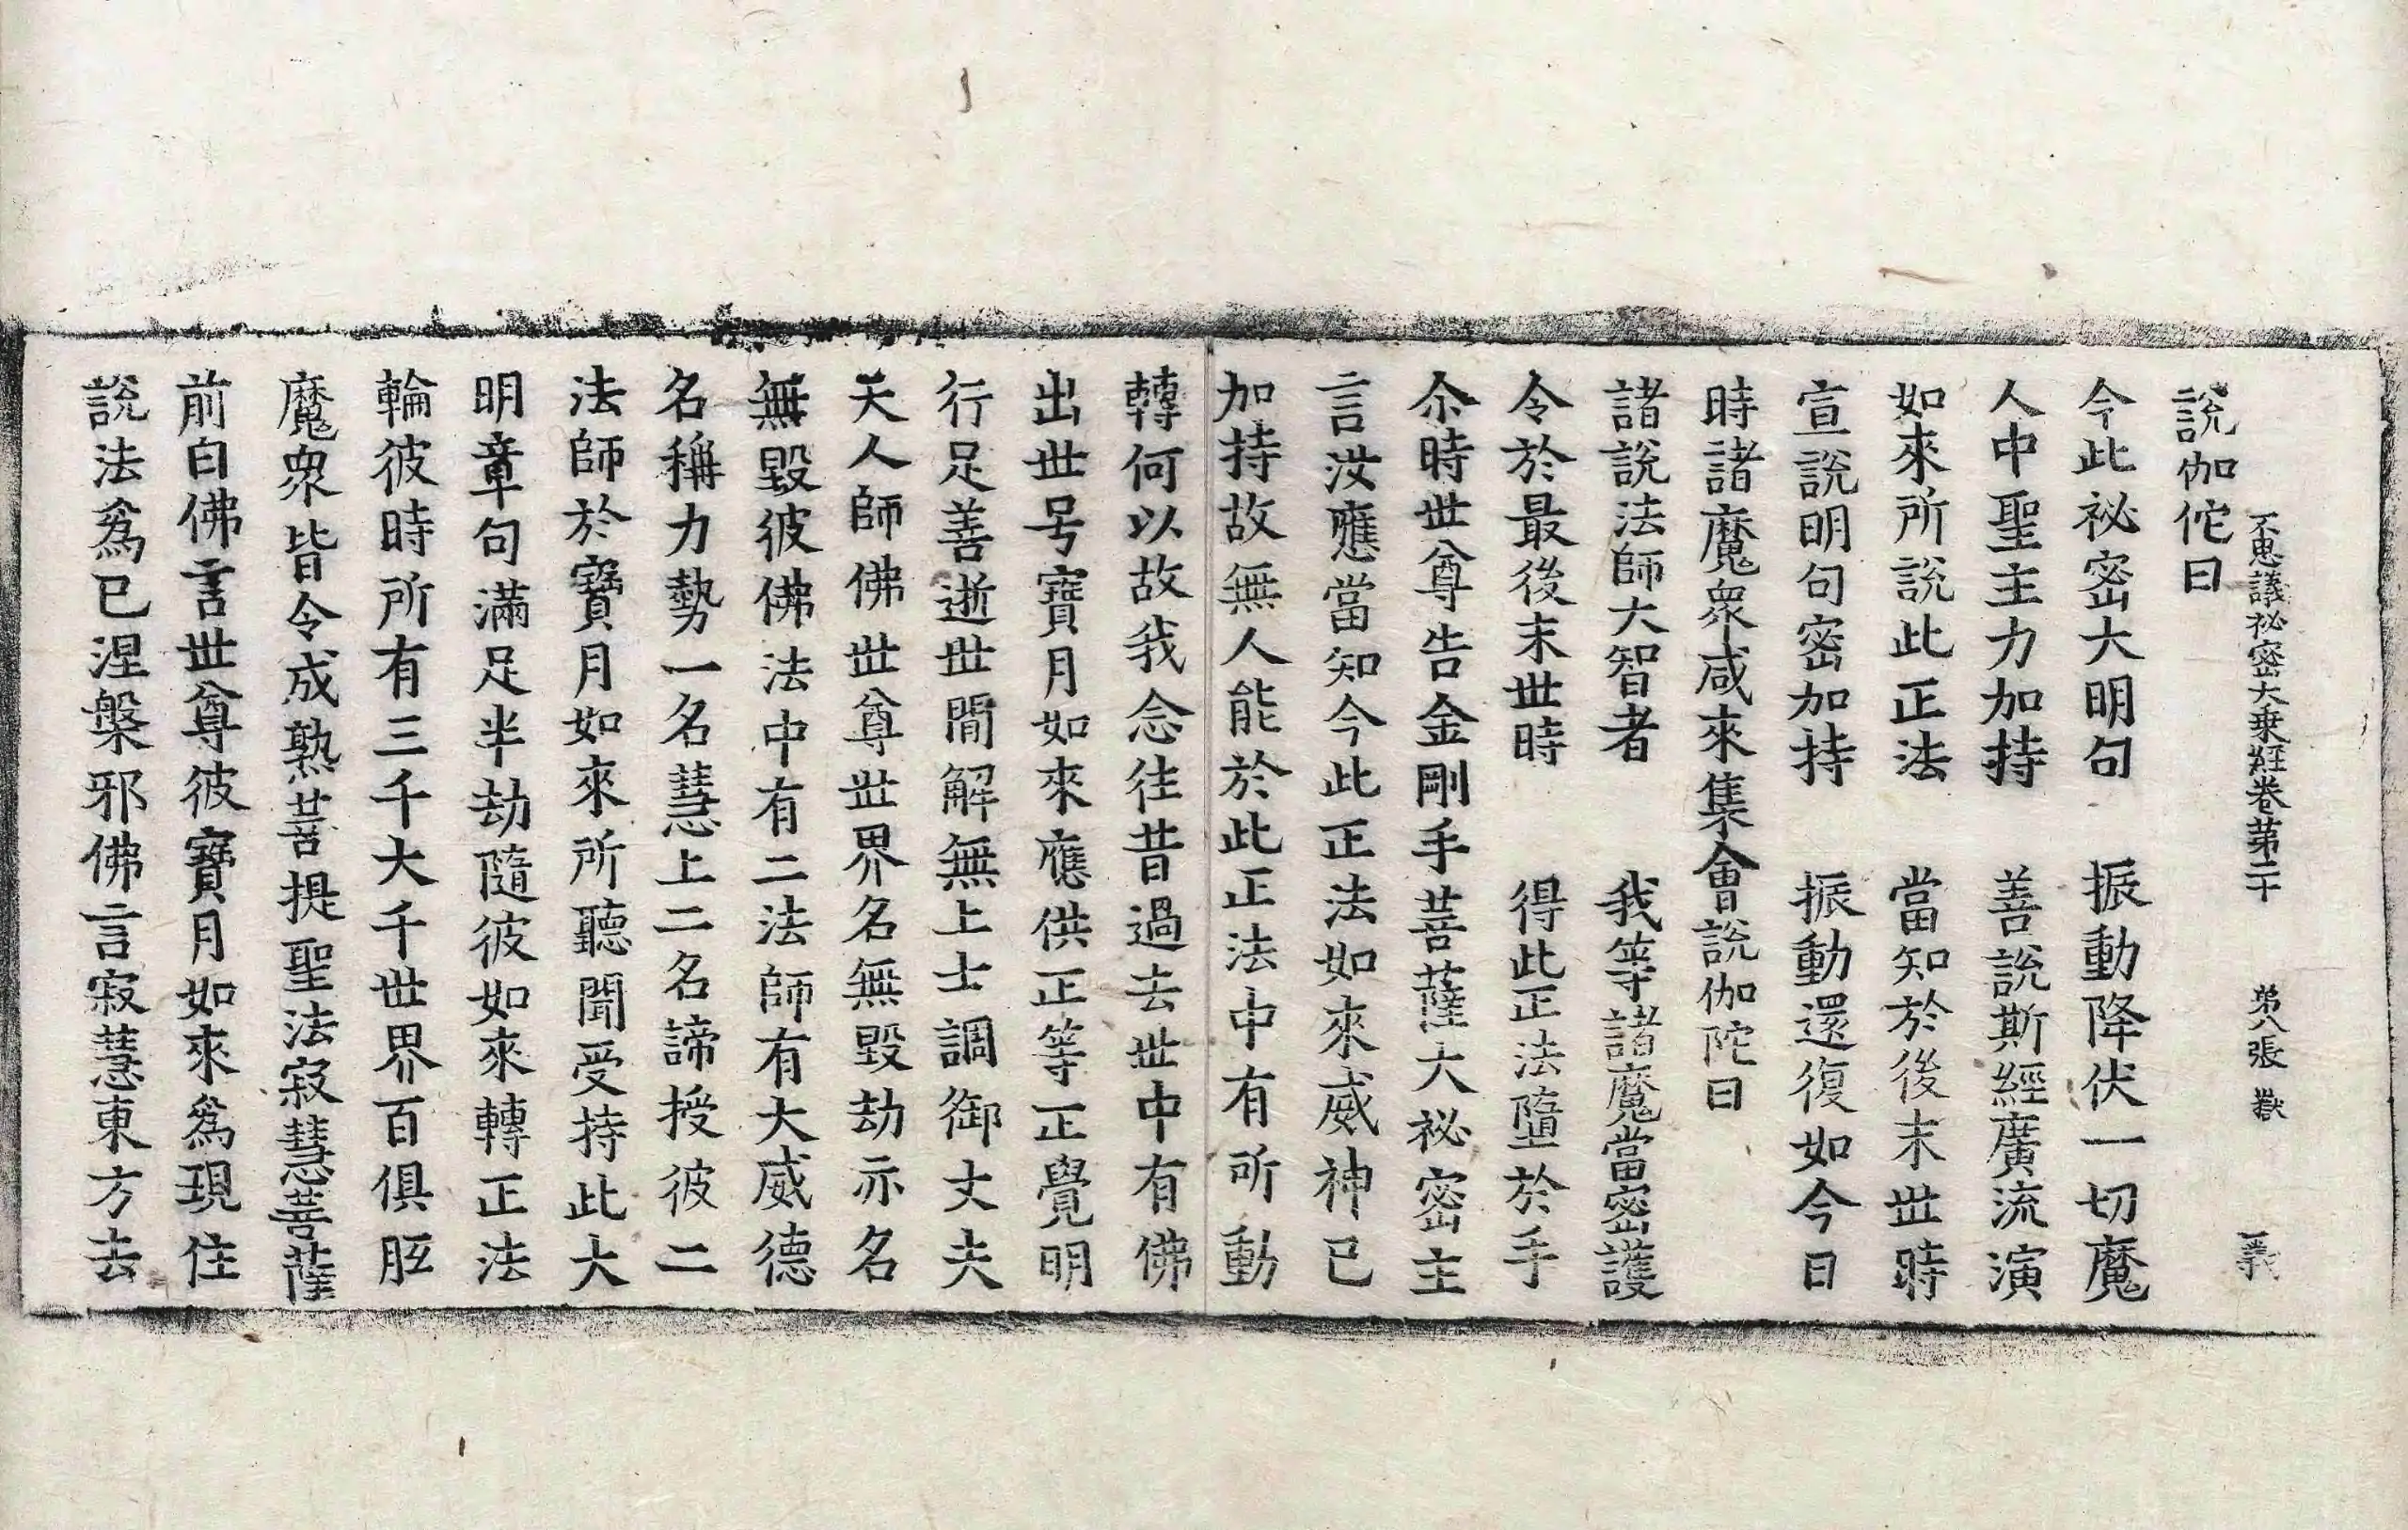 不思議祕密大乘經卷第二十　第八張　獄　義
說伽佗曰
今此祕密大明句　振動降伏一切魔
人中聖主力加持　善說斯經廣流演
如來所說此正法　當知於後末世時
宣說明句密加持　振動還復如今日
時諸魔衆咸來集會說伽陀曰
諸說法師大智者　我等諸魔當密護
令於最後末世時　得此正法墮於手
尒時世尊告金剛手菩薩大祕密主
言汝應當知今此正法如來威神已
加持故無人能於此正法中有所動
轉何以故我念往昔過去世中有佛
出世号寶月如來應供正等正覺明
行足善逝世閒解無上士調御丈夫
天人師佛世尊世界名無毀劫亦名
無毀彼佛法中有二法師有大威德
名稱力勢一名慧上二名諦授彼二
法師於寶月如來所聽聞受持此大
明章句滿足半劫隨彼如來轉正法
輪彼時所有三千大千世界百俱胝
魔衆皆令成熟菩提聖法寂慧菩薩
前白佛言世尊彼寶月如來爲現住
說法爲已涅槃邪佛言寂慧東方去